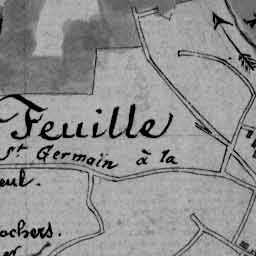 Feuille
St Germain à la
eul.
ochers.